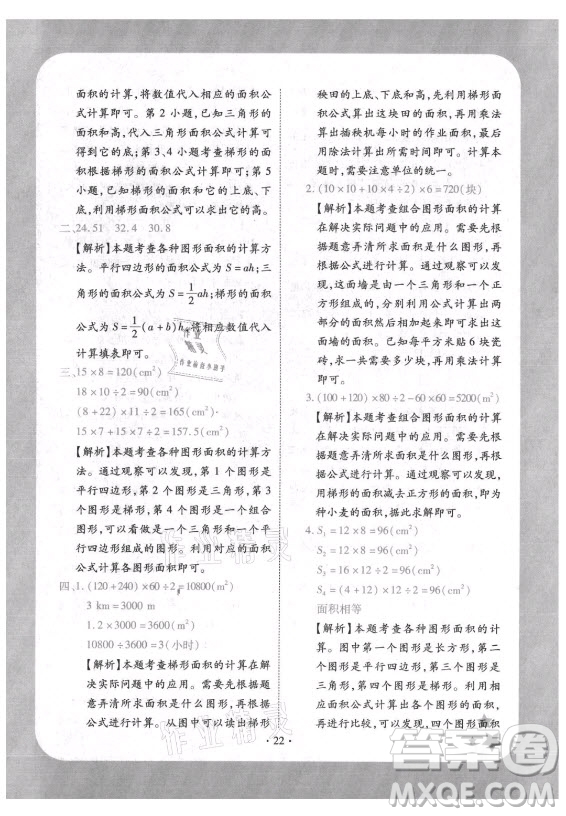 面积的计算，将数值代入相应的面积公
式计算即可。第2小题，已知三角形的
面积和高，代入三角形面积公式计算可
得到它的底；第3、4小题考查梯形的
面积根据梯形的面积公式计算即可；第5
小题，已知梯形的面积和它的上底、下
底，代入梯形面积公式可以求出它的高。
二、24.51　32.4　30.8
【解析】本题考查各种图形面积的计算方
法。平行四边形的面积公式为 S = ah；三
角形的面积公式为 S = 1/2 ah；梯形的面积
公式为 S = 1/2 (a + b)h，将相应数值代入
计算填表即可。
三、15×8=120(cm²)
18×10÷2=90(cm²)
(8+22)×11÷2=165(cm²)
15×7+15×7÷2=157.5(cm²)
【解析】本题考查各种图形面积的计算方
法。通过观察可以发现，第1个图形是
平行四边形，第2个图形是三角形，第3
个图形是梯形，第4个图形是一个组合
图形，可以看作由一个三角形和一个平
行四边形组成的图形。利用对应的面积
公式计算各图形面积即可。
四、1.(120+240)×60÷2=10800(m²)
3 km=3000 m
1.2×3000=3600(m²)
10800÷3600=3(小时)
【解析】本题考查梯形面积的计算在解
决实际问题中的应用。需要先根据题
意弄清所求面积是什么图形，再根据
公式进行计算。从图中可以读出梯形
秧田的上底、下底和高，先利用梯形面
积公式算出这块田的面积，再用乘法
算出插秧机每小时的作业面积，最后
用除法计算出所需时间即可。计算本
题时，需要注意单位的统一。
2.(10×10+10×4÷2)×6=720(块)
【解析】本题考查组合图形面积的计算
在解决实际问题中的应用。需要先根
据题意弄清所求面积是什么图形，再
根据公式进行计算。通过观察可以发
现，这面墙是由一个三角形和一个正
方形组成的，分别利用公式算出两个
图形的面积，然后利用加法计算出这
面墙的面积。已知每平方米贴6块瓷
砖，求一共需要多少块，再用乘法计算
即可。
3.(100+120)×80÷2-60×60=5200(m²)
【解析】本题考查组合图形面积的计算
在解决实际问题中的应用。需要先弄
清所求面积是什么图形，再根据公式
进行计算。通过观察可以发现，用梯
形的面积减去正方形的面积，即为
种小麦的面积，据此求解即可。
4.S₁=12×8=96(cm²)
S₂=12×8=96(cm²)
S₄=(4+20)×8÷2=96(cm²)
面积相等
【解析】本题考查各种图形面积的计
算。图中第一个图形是长方形，第二
个图形是平行四边形，第三个图形是三
角形，第四个图形是梯形。计算面积后
再进行比较，可以发现，四个图形面积
· 22 ·
作业精灵
作业精灵
答案圈
MXQE.COM